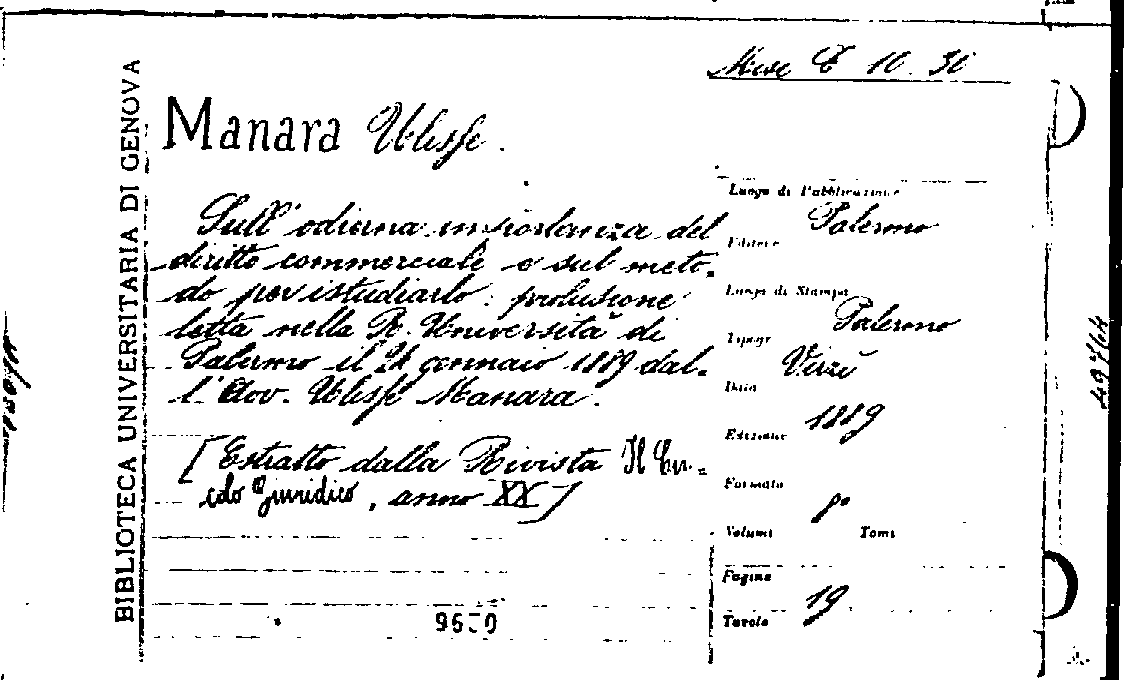 Misc E 10. 30
BIBLIOTECA UNIVERSITARIA DI GENOVA
Manara Ulisse.
Sull' odierna importanza del
diritto commerciale e sul meto-
do per istudiarlo: prolusione
letta nella R. Università di
Palermo il 24 gennaio 1889 dal-
l'Avv. Ulisse Manara.
[Estratto dalla Rivista Il Cir-
colo Giuridico, anno XX]
Luogo di Pubblicazione
Palermo
Editore
Luogo di Stampa
Palermo
Tipogr
Virzì
Data
1889
Edizione
Formato
8°
Volumi Tomi
Pagine
19
Tavole